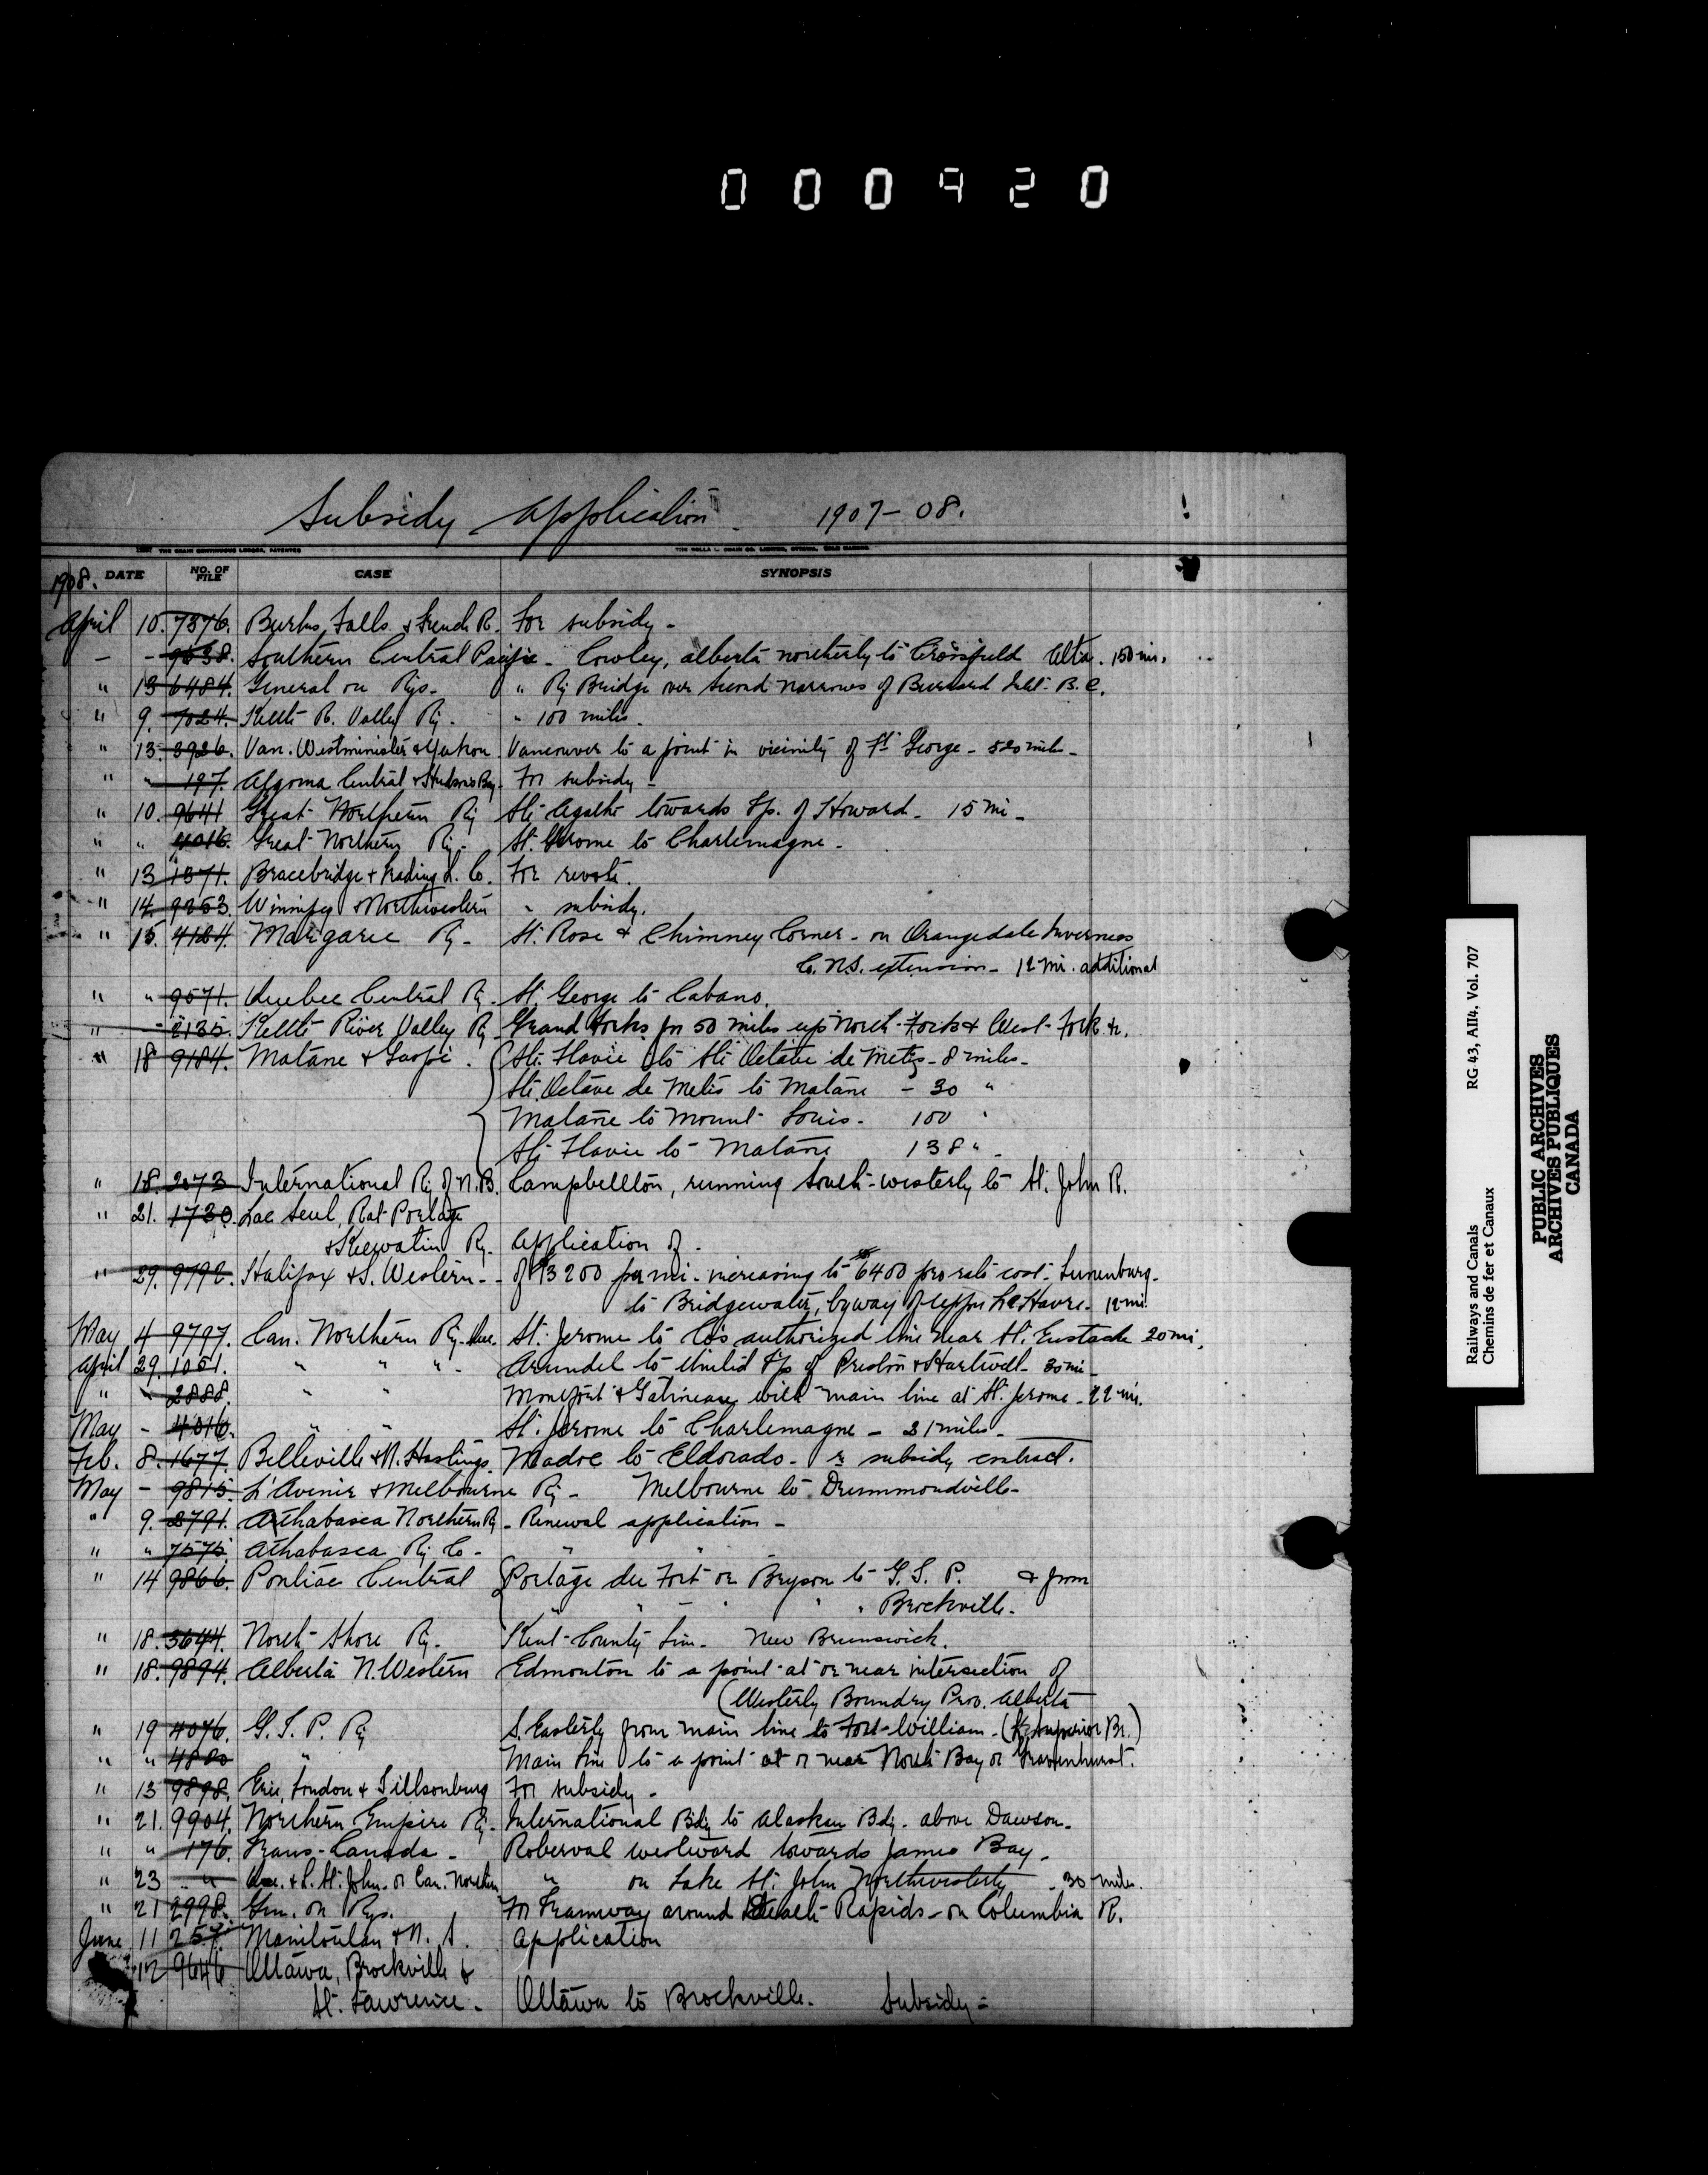 000420
Subsidy Application - 1907-08.
1908. DATE NO. OF FILE CASE SYNOPSIS
April 10. 7376. Burks Falls & French R. For subsidy -
- - 9638. Southern Central Pacific - Cowley, Alberta northerly to Crossfield Alta. 150 mi.
" 13 6484. General on Rys. " Ry Bridge over Second Narrows of Burrard Inlet B.C.
" 9. 7024. Kettle R. Valley Ry. " 100 miles.
" 13. 3926. Van. Westminister & Yukon Vancouver to a point in vicinity of Ft George - 520 miles -
" " 197. Algoma Central & Hudsons Bay. For subsidy -
" 10. 9641 Great Northern Ry Ste Agathe towards Tp. of Howard - 15 mi -
" " 4016. Great Northern Ry - St. Jerome to Charlemagne -
" 13 1371. Bracebridge & Trading L. Co. For revote.
" 14. 9253. Winnipeg & Northwestern " subsidy.
" 15. 4124. Margaree Ry - St. Rose & Chimney Corner - on Orangedale Inverness
Co. N.S. extension - 12 mi. additional
" " 9571. Quebec Central Ry. St. George to Cabano.
" - 2135. Kettle River Valley Ry Grand Forks for 50 miles up North Fork & West Fork &c.
" 18 9184. Matane & Gaspé. Ste. Flavie to Ste Octave de Metis - 8 miles -
Ste. Octave de Metis to Matane - 30 "
Matane to Mount Louis - 100 "
Ste Flavie to Matane 138 " -
" 18. 2073 International Ry of N.B. Campbellton, running South-westerly to St. John R.
" 21. 1730. Lac Seul, Rat Portage
& Keewatin Ry. Application of -
" 29. 9792. Halifax & S. Western - of $3200 per mi - increasing to $6400 pro rata cost - Lunenburg -
to Bridgewater, by way of upper La Havre - 12 mi.
May 4 9797. Can. Northern Ry. Que. St. Jerome to Co's authorized line near St. Eustache 20 mi.
April 29. 1051. " " " - Arundel to United Tp of Preston & Hartwell - 30 mi -
" " 2888. " " Montfort & Gatineau with main line at St. Jerome - 22 mi.
May - 4016. " " St. Jerome to Charlemagne - 21 miles -
Feb. 8. 1677. Belleville & N. Hastings. Madoc to Eldorado - re subsidy contract.
May - 9815. L'Avenir & Melbourne Ry - Melbourne to Drummondville -
" 9. 2791. Athabasca Northern Ry - Renewal application -
" " 7575. Athabasca Ry Co - " "
" 14 9866. Pontiac Central Portage du Fort or Bryson to G.T.P. & from
" " " " " Brockville -
" 18. 3644. North Shore Ry. Kent County Line - New Brunswick.
" 18. 9894. Alberta N. Western Edmonton to a point at or near intersection of
(Westerly Boundry Prov. Alberta
" 19 4076. G.T.P. Ry S. Easterly from main line to Fort William - (L. Superior Br.)
" " 4880 " Main line to a point at or near North Bay or Gravenhurst.
" 13 9898. Erie, London & Tillsonburg For subsidy -
" 21. 9904. Northern Empire Ry - International Bdy to Alaskan Bdy. above Dawson.
" " 176. Trans-Canada - Roberval westward towards James Bay.
" 23 - " Que. & L. St. John or Can. Northern " on Lake St. John Northwesterly - 30 miles.
" 21 2998. Gen. on Rys. For Tramway around Death Rapids - on Columbia R.
June 11 257. Manitoulin & N. S. Application
12 9646 Ottawa, Brockville &
St. Lawrence - Ottawa to Brockville. Subsidy -
Railways and Canals RG 43, AII4, Vol. 707
Chemins de fer et Canaux
PUBLIC ARCHIVES
ARCHIVES PUBLIQUES
CANADA